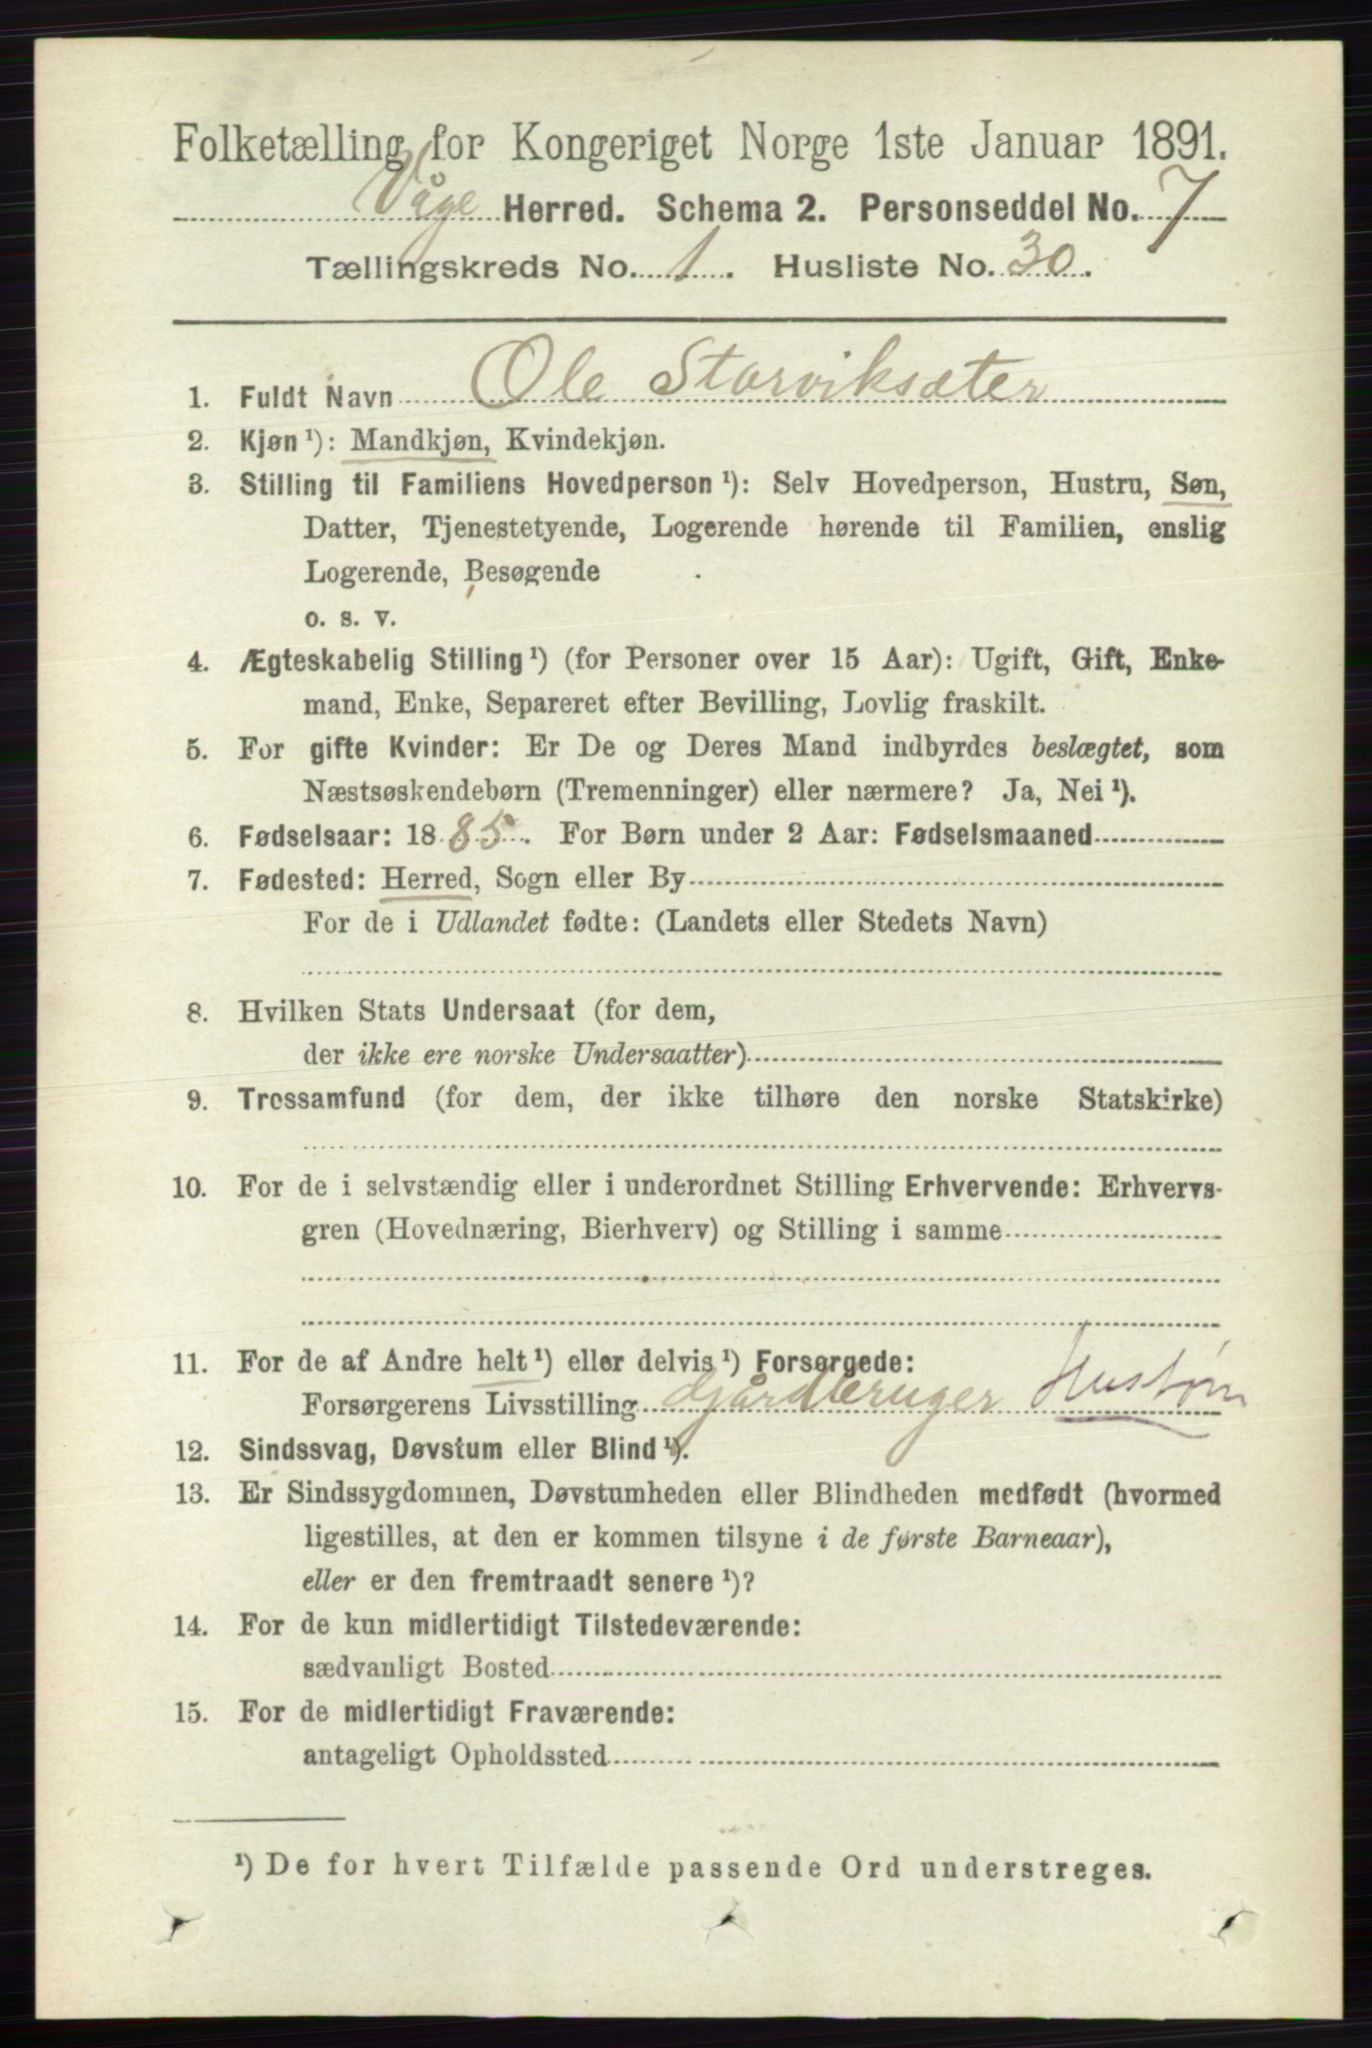 Folketælling for Kongeriget Norge 1ste Januar 1891.
Våge Herred. Schema 2. Personseddel No. 7
Tællingskreds No. 1. Husliste No. 30.
1. Fuldt Navn Ole Storviksæter
2. Kjøn¹): Mandkjøn, Kvindekjøn.
3. Stilling til Familiens Hovedperson¹): Selv Hovedperson, Hustru, Søn,
Datter, Tjenestetyende, Logerende hørende til Familien, enslig
Logerende, Besøgende
o. s. v.
4. Ægteskabelig Stilling¹) (for Personer over 15 Aar): Ugift, Gift, Enke-
mand, Enke, Separeret efter Bevilling, Lovlig fraskilt.
5. For gifte Kvinder: Er De og Deres Mand indbyrdes beslægtet, som
Næstsøskendebørn (Tremenninger) eller nærmere? Ja, Nei¹).
6. Fødselsaar: 1885. For Børn under 2 Aar: Fødselsmaaned
7. Fødested: Herred, Sogn eller By
For de i Udlandet fødte: (Landets eller Stedets Navn)
8. Hvilken Stats Undersaat (for dem,
der ikke ere norske Undersaatter)
9. Trossamfund (for dem, der ikke tilhøre den norske Statskirke)
10. For de i selvstændig eller i underordnet Stilling Erhvervende: Erhvervs-
gren (Hovednæring, Bierhverv) og Stilling i samme
11. For de af Andre helt¹) eller delvis¹) Forsørgede:
Forsørgerens Livsstilling Gårdbruger
12. Sindssvag, Døvstum eller Blind¹).
13. Er Sindssygdommen, Døvstumheden eller Blindheden medfødt (hvormed
ligestilles, at den er kommen tilsyne i de første Barneaar),
eller er den fremtraadt senere¹)?
14. For de kun midlertidigt Tilstedeværende:
sædvanligt Bosted
15. For de midlertidigt Fraværende:
antageligt Opholdssted
¹) De for hvert Tilfælde passende Ord understreges.